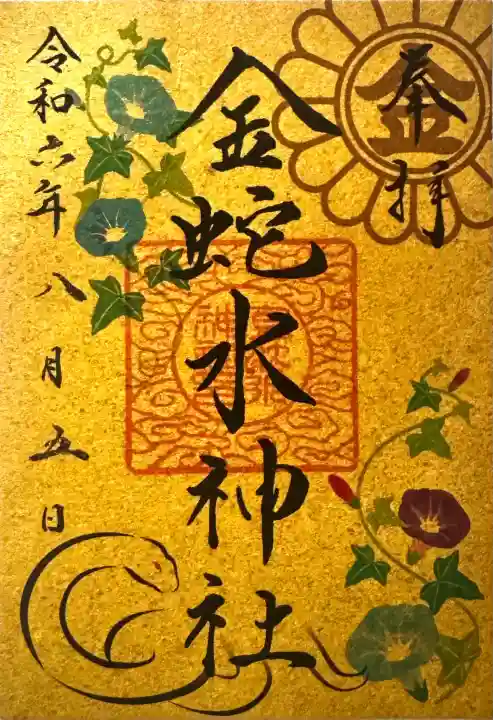 奉拝
金
金蛇水神社
令和六年八月五日